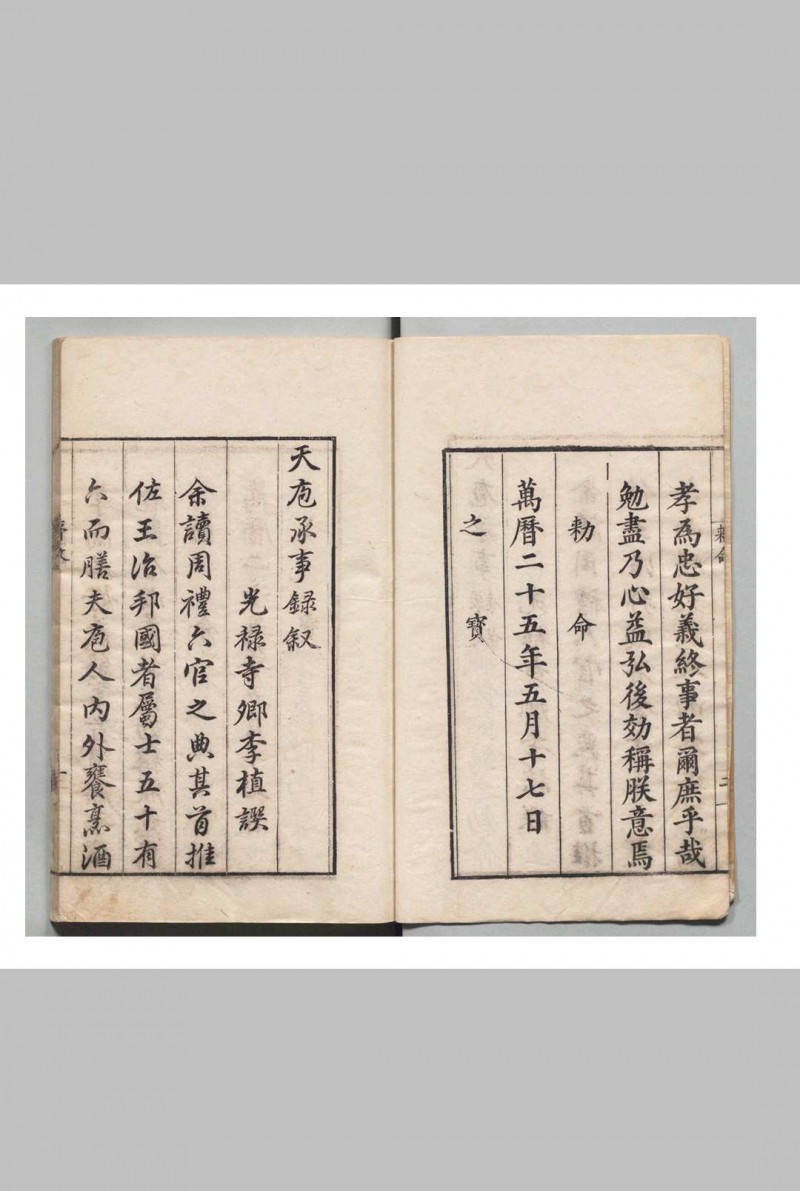 孝為忠好義終事者爾庶乎哉
勉盡乃心益弘後効稱朕意焉
勑命
萬曆二十五年五月十七日
之寳
天庖承事録叙
光禄寺卿李植譔
余讀周禮六官之典其首推
佐王治邦國者屬士五十有
六而膳夫庖人内外饔烹酒